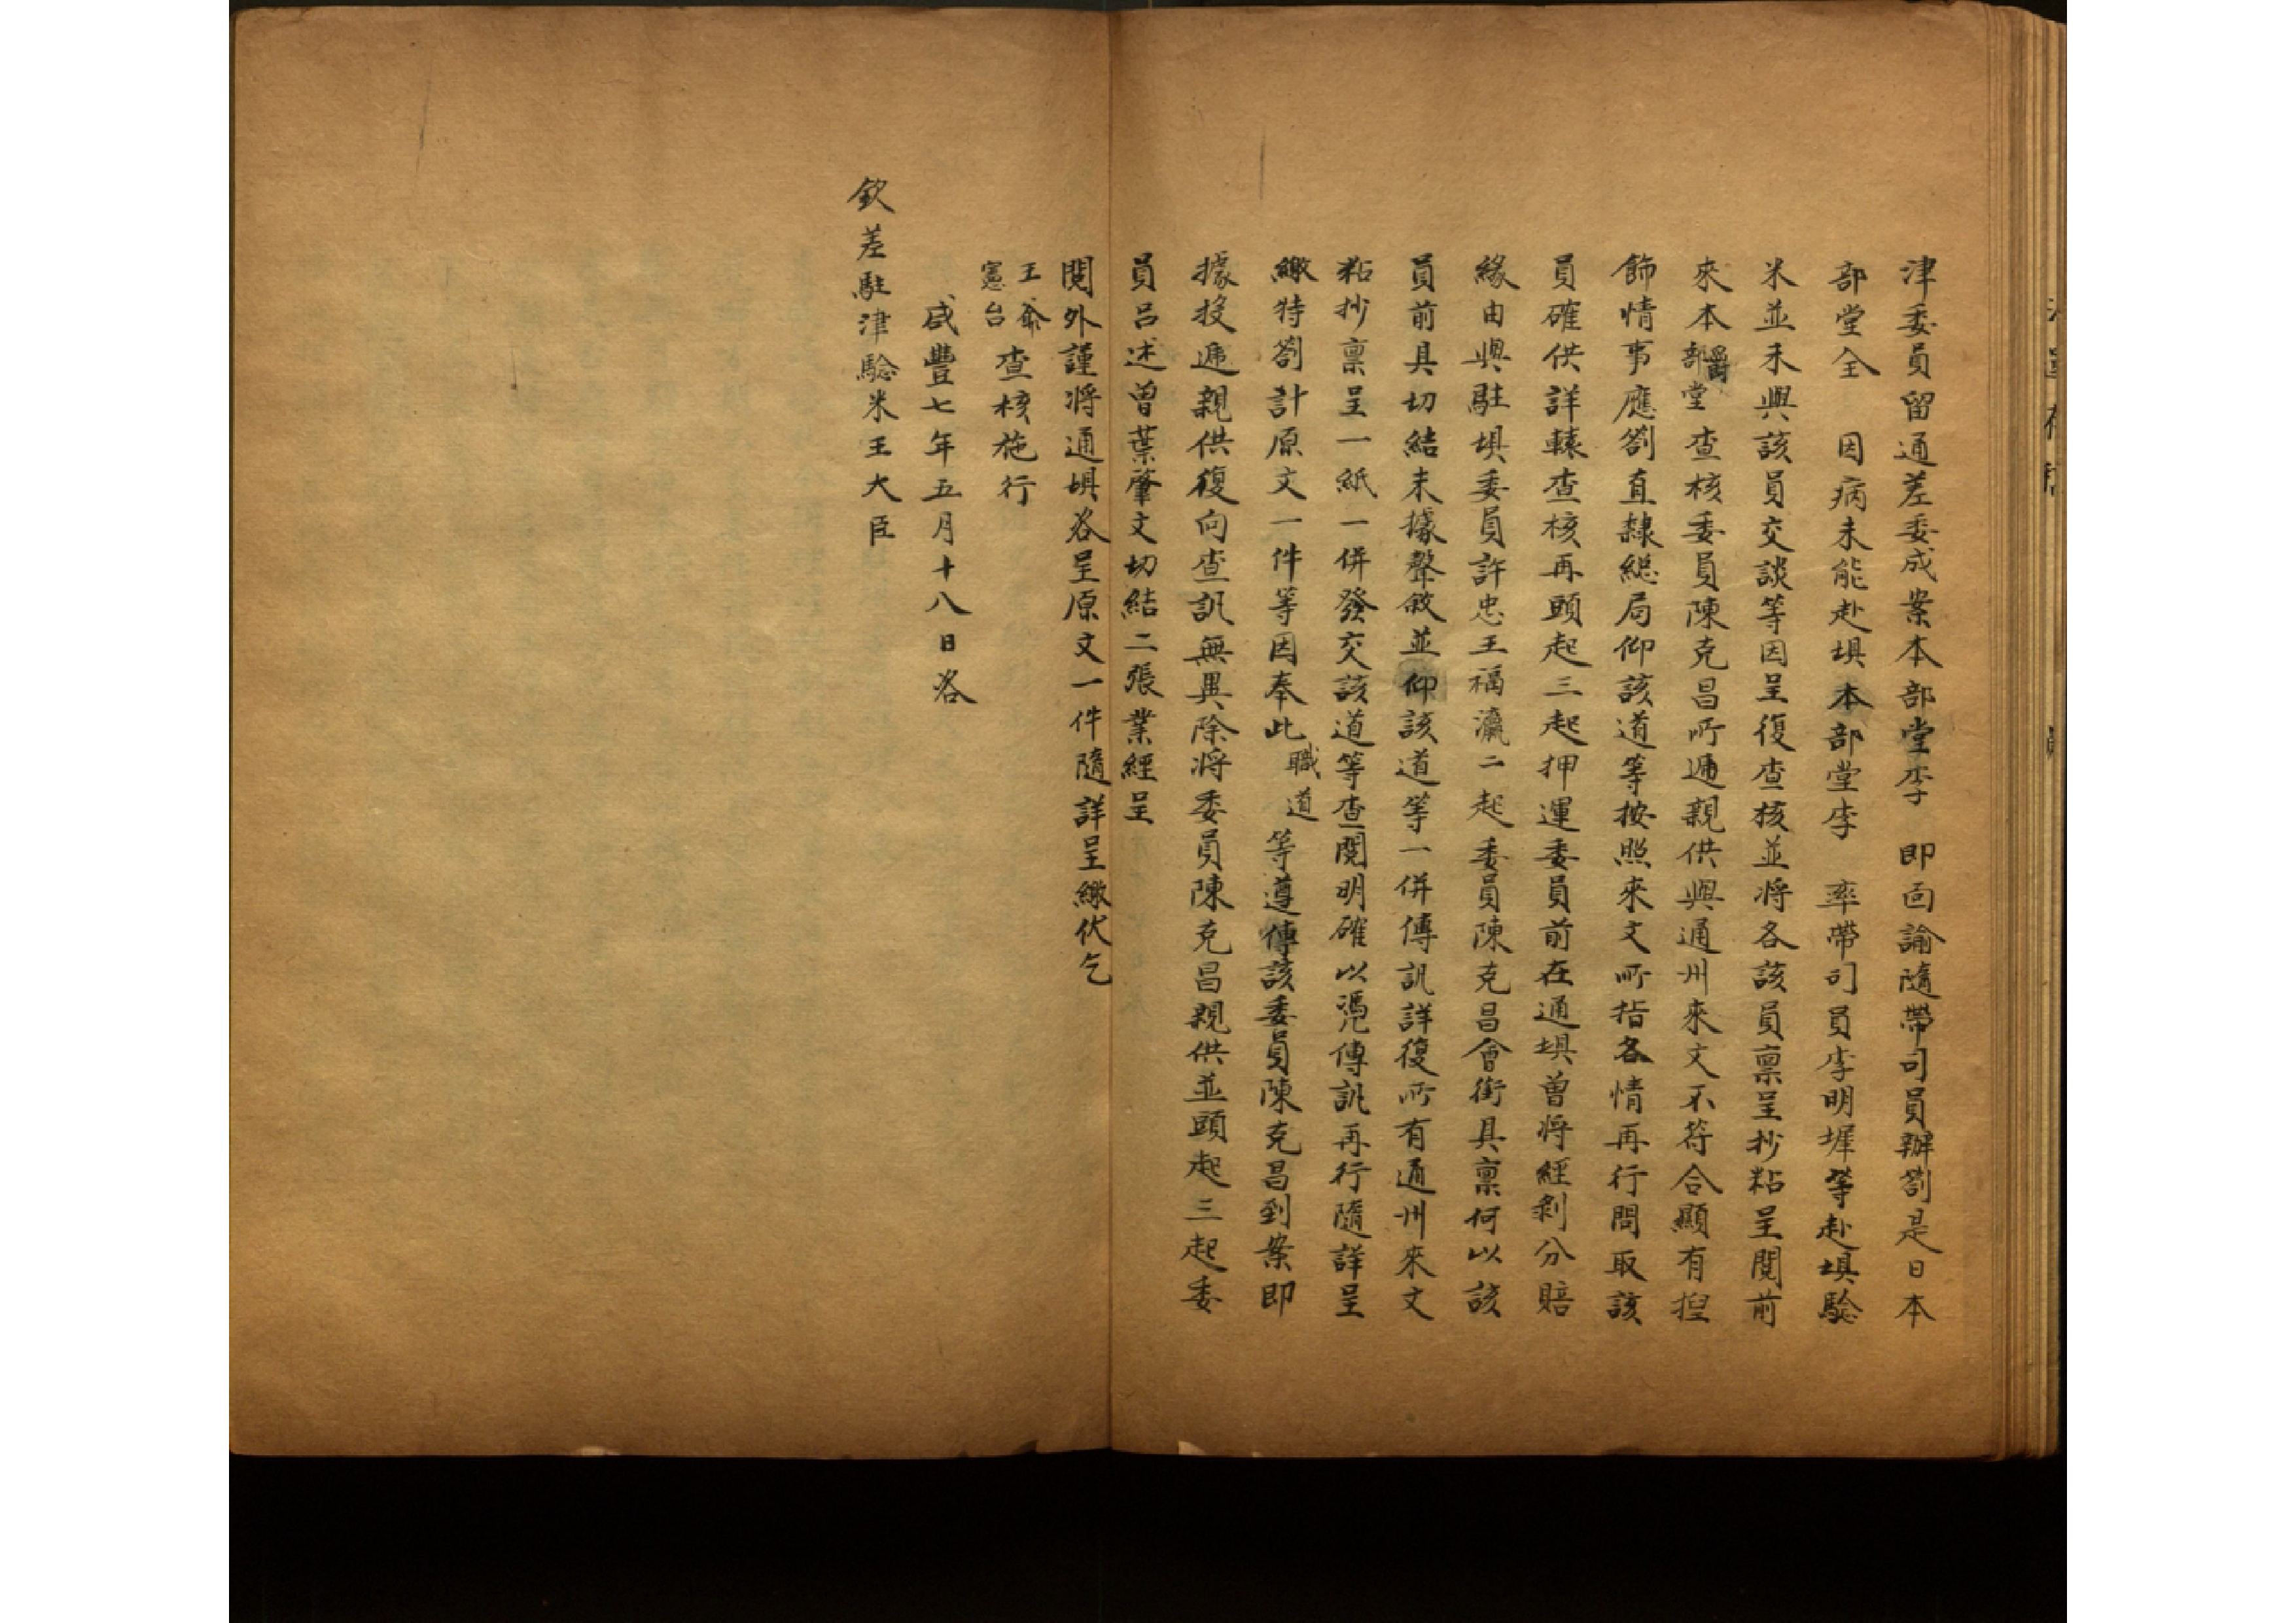 津委員留通差委成案本部堂李　即面諭隨帶司員辦劄是日本
部堂全　因病未能赴壩本部堂李　率帶司員李明墀等赴壩驗
米並未與該員交談等因呈復查核並將各該員稟呈抄粘呈閱前
來本爵部堂查核委員陳克昌所遞親供與通州來文不符合顯有捏
飾情事應劄直隸総局仰該道等按照來文所指各情再行問取該
員確供詳轅查核再頭起三起押運委員前在通壩曾將經剥分賠
緣由與駐壩委員許忠王福瀛二起委員陳克昌會銜具稟何以該
員前具切結未據聲敘並仰該道等一併傳訊詳復所有通州來文
粘抄稟呈一紙一併發交該道等查閱明確以憑傳訊再行隨詳呈
繳特劄計原文一件等因奉此職道等遵傳該委員陳克昌到案即
據投遞親供復向查訊無異除將委員陳克昌親供並頭起三起委
員呂述曾葉肇文切結二張業經呈
閱外謹將通壩咨呈原文一件隨詳呈繳伏乞
王爺憲台查核施行
咸豐七年五月十八日咨
欽差駐津驗米王大臣